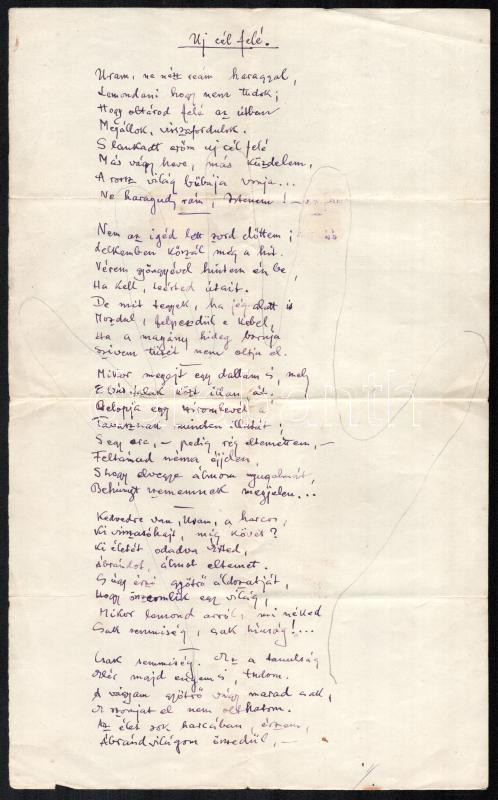 Uj cél felé.
Uram, ne nézz reám haraggal,
Lemondani hogy nem tudok;
Hogy oltárod felé az útban
Megállok, visszafordulok.
S lankadt erőm uj cél felé
Más vágy heve, más küzdelem,
A rossz világ bűbája vonja...
Ne haragudj rám, Istenem! –
Nem az igéd lett zord előttem;
Lelkemben kószál még a hit.
Vérem gyöngyével hintem én be,
Ha kell, útait.
De mit tegyek, ha jég alatt is
Mozdul, felpezdül e kebel,
Ha a magány hideg borúja
Szivem tüzét nem oltja el.
Mikor megejt egy dallam is, mely
E falak közt illan át.
Belopja egy sziromlevél a
Tavasznak minden illatát;
S egy arc, – pedig rég eltemettem, –
Feltámad néma éjjelen,
S hogy elvegye álmom nyugalmát,
Behúnyt szememnek megjelen...
Kedvedre van, Uram, a harcos,
Ki visszasóhajt, míg követ?
Ki életét odadva érted,
Ábrándot, álmot eltemet.
S úgy érzi gyötrő áldozatját,
Hogy összeomlik egy világ,
Mikor lemond arról, mi néked
Csak semmiség, csak hiúság!...
Csak semmiség. Az a tanulság
Elér majd engem is, tudom.
A vágyam gyötrő vágy marad csak,
A szomjat el nem olthatom.
Az élet zok harcában, érzem,
Ábrándvilágom összedül, –